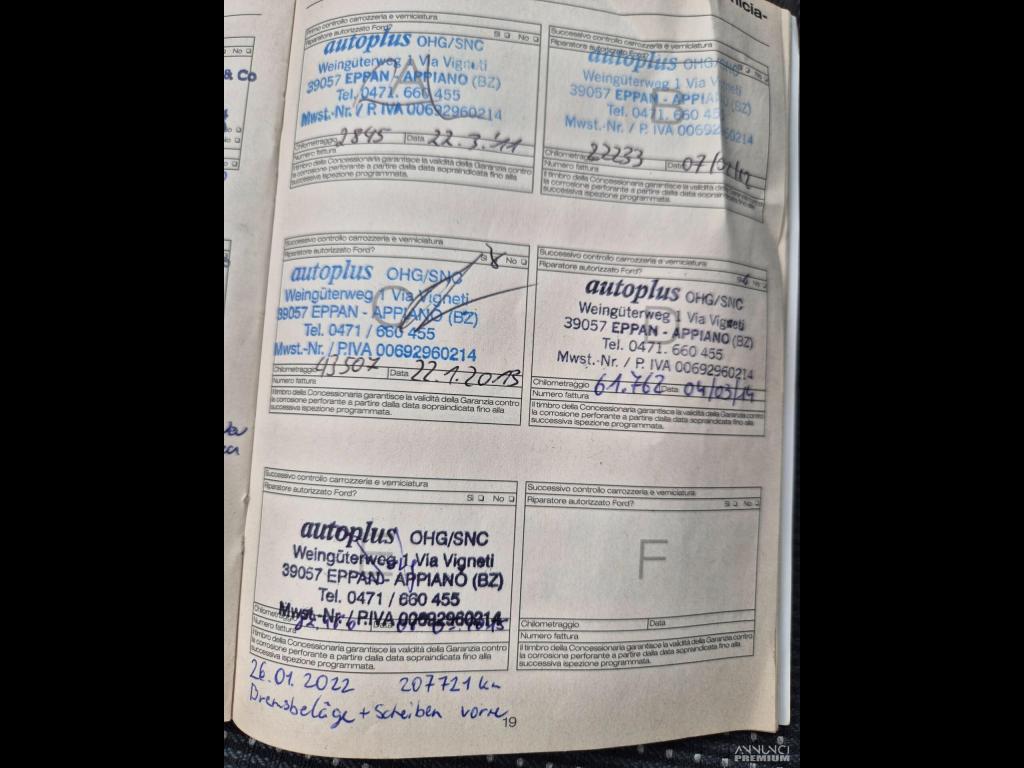 nicia-
& Co
Primo controllo carrozzeria e verniciatura
Riparatore autorizzato Ford?
Sì No
autoplus OHG/SNC
Weingüterweg 1 Via Vigneti
39057 EPPAN - APPIANO (BZ)
Tel. 0471. 660 455
Mwst.-Nr. / P. IVA 00692960214
A
Chilometraggio 2845 Data 22.3.'11
Numero fattura
Il timbro della Concessionaria garantisce la validità della Garanzia contro
la corrosione perforante a partire dalla data sopraindicata fino alla
successiva ispezione programmata.
Successivo controllo carrozzeria e verniciatura
Riparatore autorizzato Ford?
autoplus OHG/SNC
Weingüterweg 1 Via Vigneti
39057 EPPAN - APPIANO (BZ)
Tel. 0471. 660 455
Mwst.-Nr. / P. IVA 00692960214
B
Chilometraggio 22233 Data
Numero fattura
Il timbro della Concessionaria garantisce la validità della Garanzia contro
la corrosione perforante a partire dalla data sopraindicata fino alla
successiva ispezione programmata.
Successivo controllo carrozzeria e verniciatura
Riparatore autorizzato Ford?
Sì No
autoplus OHG/SNC
Weingüterweg 1 Via Vigneti
39057 EPPAN - APPIANO (BZ)
Tel. 0471 / 660 455
Mwst.-Nr. / P.IVA 00692960214
C
Chilometraggio 43507 Data 22.1.2013
Numero fattura
Il timbro della Concessionaria garantisce la validità della Garanzia contro
la corrosione perforante a partire dalla data sopraindicata fino alla
successiva ispezione programmata.
Successivo controllo carrozzeria e verniciatura
Riparatore autorizzato Ford?
Sì No
autoplus OHG/SNC
Weingüterweg 1 Via Vigneti
39057 EPPAN - APPIANO (BZ)
Tel. 0471. 660 455
Mwst.-Nr. / P. IVA 00692960214
D
Chilometraggio 61.762 Data 04/03/14
Numero fattura
Il timbro della Concessionaria garantisce la validità della Garanzia contro
la corrosione perforante a partire dalla data sopraindicata fino alla
successiva ispezione programmata.
Successivo controllo carrozzeria e verniciatura
Riparatore autorizzato Ford?
Sì No
autoplus OHG/SNC
Weingüterweg 1 Via Vigneti
39057 EPPAN - APPIANO (BZ)
Tel. 0471 / 660 455
Mwst.-Nr. / P.IVA 00692960214
E
Chilometraggio Data
Numero fattura
Il timbro della Concessionaria garantisce la validità della Garanzia contro
la corrosione perforante a partire dalla data sopraindicata fino alla
successiva ispezione programmata.
Successivo controllo carrozzeria e verniciatura
Riparatore autorizzato Ford?
Sì No
F
Chilometraggio Data
Numero fattura
Il timbro della Concessionaria garantisce la validità della Garanzia contro
la corrosione perforante a partire dalla data sopraindicata fino alla
successiva ispezione programmata.
26.01.2022 207721 km
Bremsbeläge + Scheiben vorne
19
ANNUNCI
PREMIUM